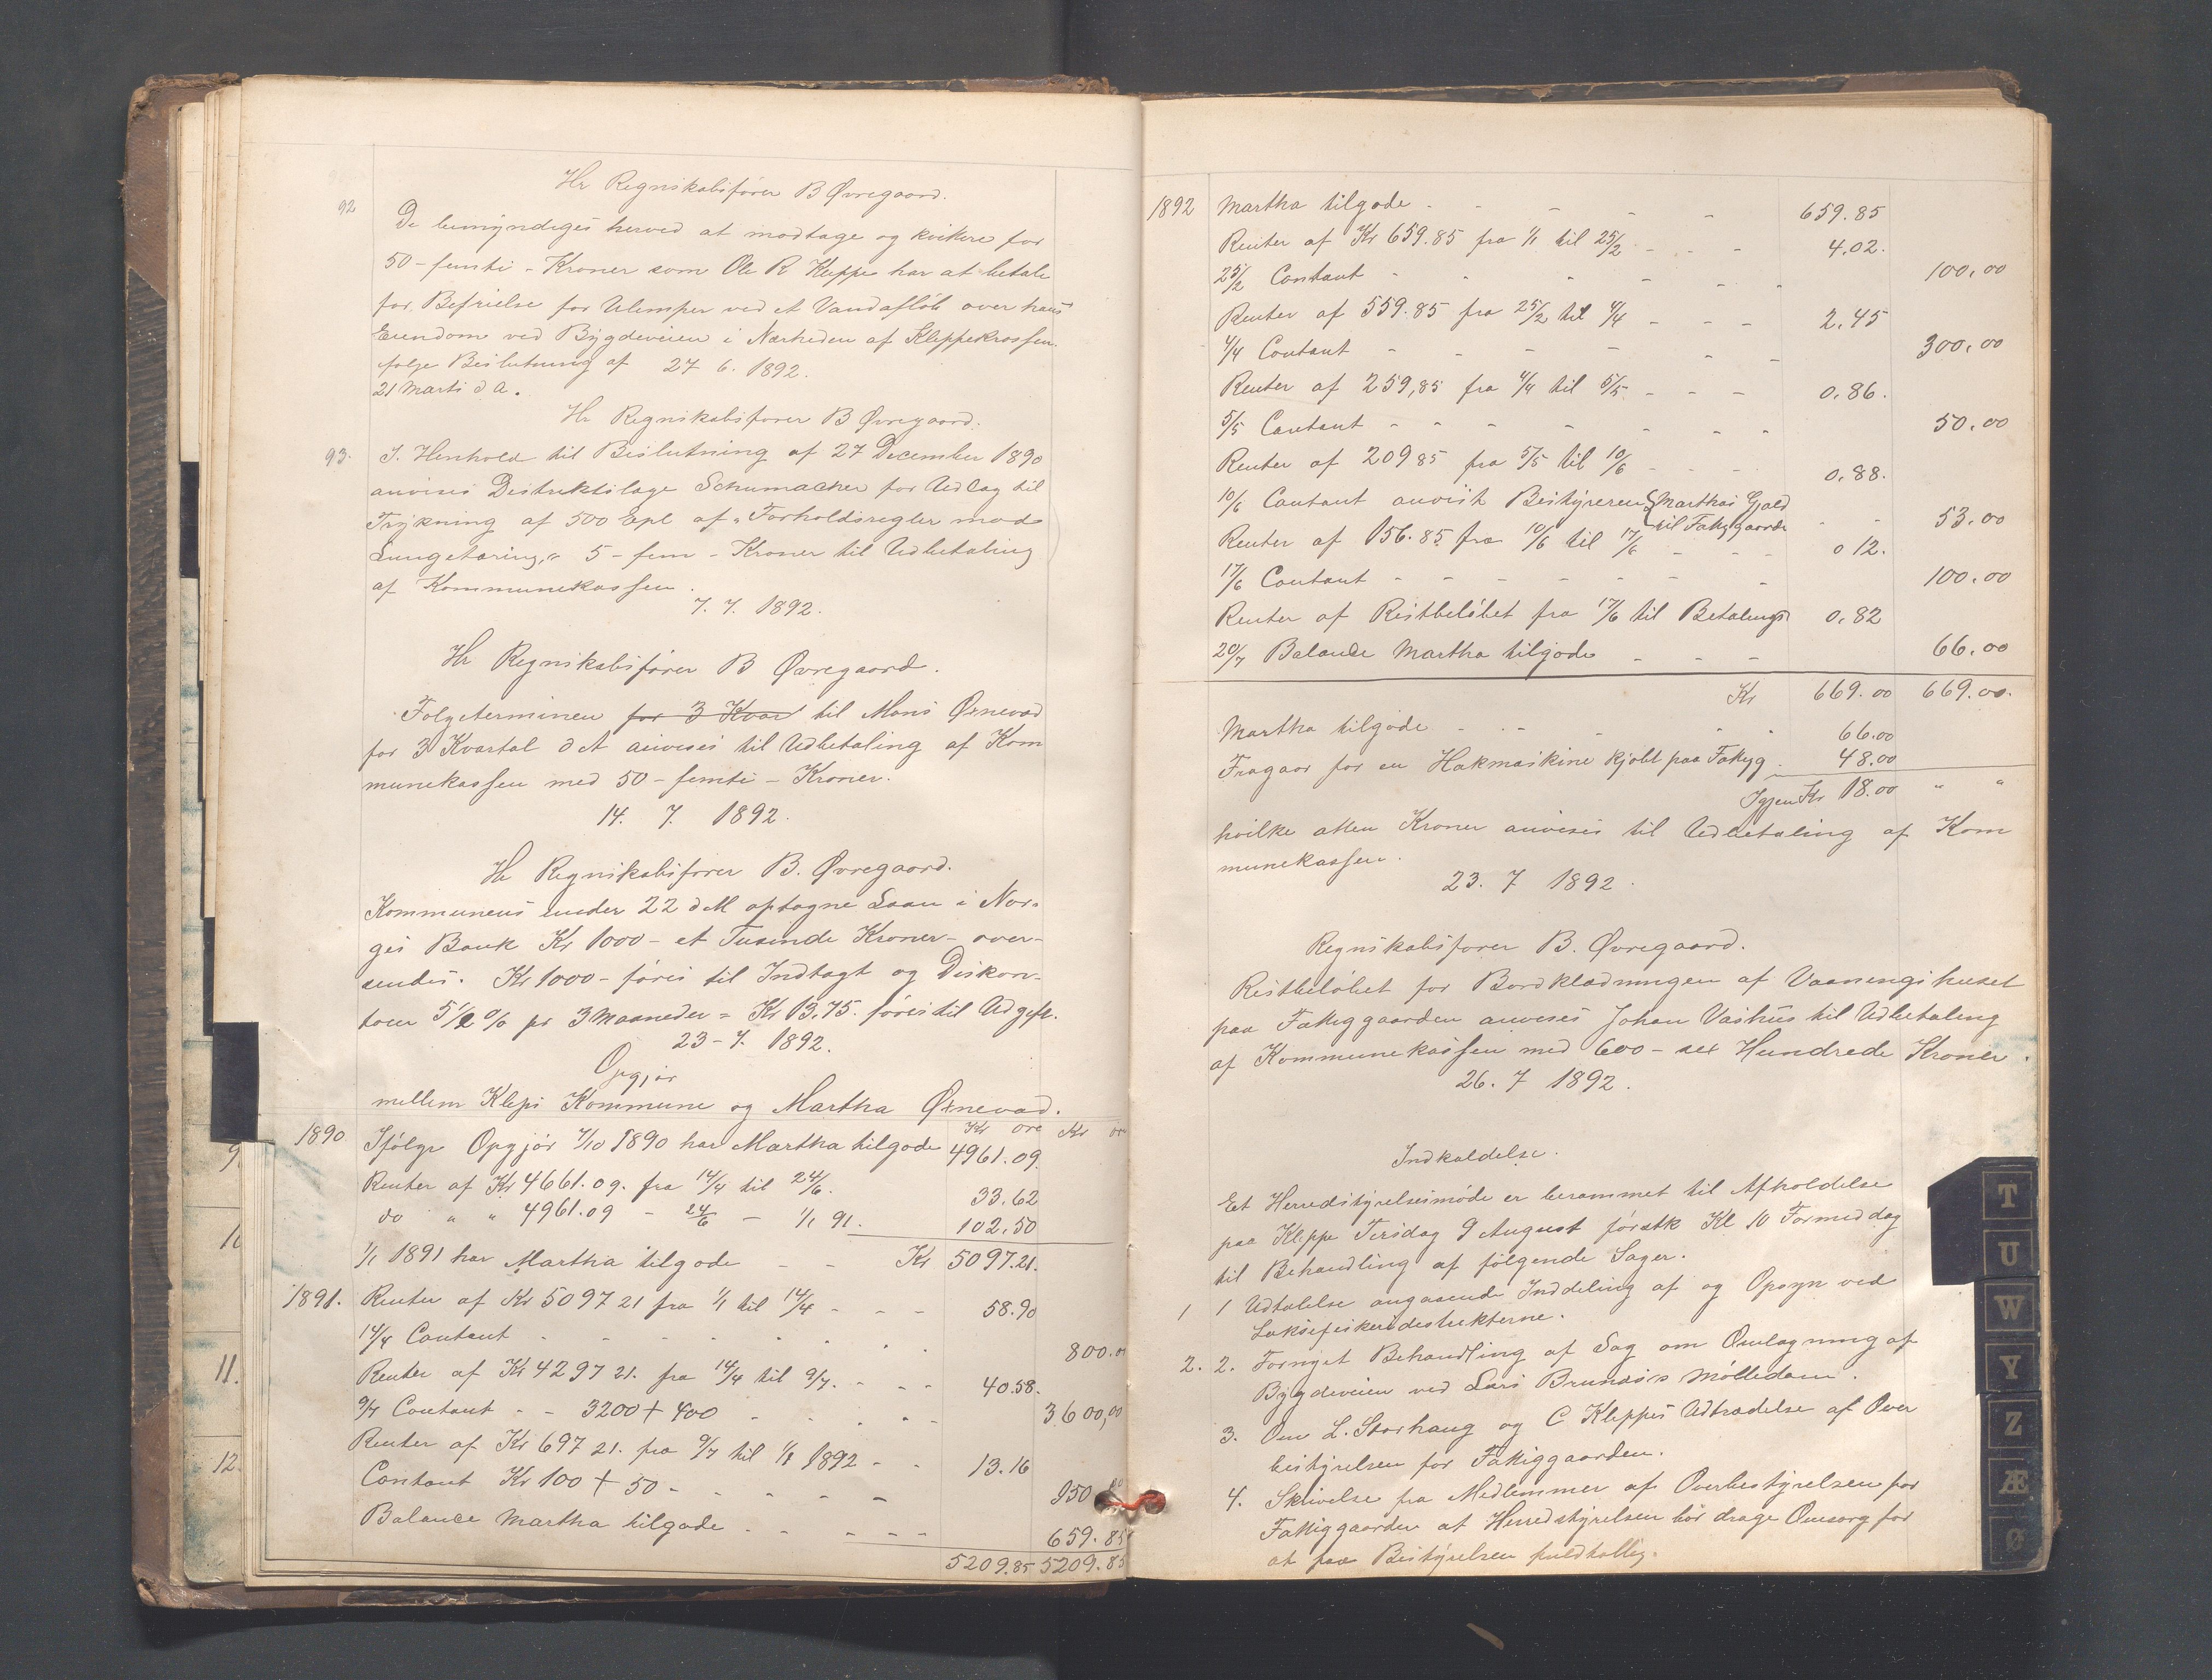 Hr Regnskabsfører B Øvregaard.
92
De bemyndiges herved at modtage og kvitere for
50 - femti - Kroner som Ole R Kleppe har at betale
for Befrielse for Ulemper ved et Vandafløb over hans
Eiendom ved Bygdeveien i Nærheden af Kleppekrossen.
følge Beslutning af 27 6. 1892.
21 Marts d A.
Hr Regnskabsfører B Øvregaard.
93. I. Henhold til Beslutning af 27 December 1890
anvises Distriktslæge Schumacher for Udlæg til
Trykning af 500 Expl af "Forholdsregler mod
Lungetæring," 5 - fem - Kroner til Udbetaling
af Kommunekassen.
7. 7. 1892.
Hr Regnskabsfører B Øvregaard.
Folgeterminen for 3 Kvar til Mons Øxnevad
for 3 Kvartal d A anvises til Udbetaling af Kom
munekassen med 50 - femti - Kroner.
14. 7. 1892.
Hr Regnskabsfører B. Øvregaard.
Kommunens under 22 d M optagne Laan i Nor-
ges Bank Kr 1000 - et Tusinde Kroner - over-
sendes. Kr 1000 - føres til Indtægt og Diskon-
toen 5 1/2 % pr 3 Maaneder = Kr 13.75. føres til Udgift.
23 - 7. 1892.
Opgjør
mellem Kleps Kommune og Martha Øxnevad.
Kr øre Kr øre
1890 Ifølge Opgjør 7/10 1890 har Martha tilgode 4961.09.
Renter af Kr 4661.09. fra 14/4 til 24/6. 33.62
do " " 4961.09 - 24/6 - 1/1 91. 102.50
1/1 1891 har Martha tilgode - - Kr 5097.21.
1891. Renter af Kr 5097 21 fra 1/1 til 14/4 - - - 58.90
14/4 Contant - - - - - - - 800.00
Renter af Kr 4297 21. fra 14/4 til 9/7. - - - 40.58.
9/7 Contant - - 3200 + 400 - - - - - 3600,00
Renter af Kr 697 21. fra 9/7 til 1/1 1892 - - 13.16
Contant Kr 100 + 50 - - - - - - 150.00
Balance Martha tilgode - - - - - 659.85
5209.85 5209.85
1892 Martha tilgode - - - - - 659.85
Renter af Kr 659.85 fra 1/1 til 25/2 - - - 4.02.
25/2 Contant - - - - - - 100.00
Renter af 559.85 fra 25/2 til 4/4 - - - 2.45
4/4 Contant - - - - - - 300.00
Renter af 259,85 fra 4/4 til 5/5 - - - 0.86.
5/5 Contant - - - - - - - 50.00
Renter af 209 85 fra 5/5 til 10/6 - - - 0.88.
10/6 Contant anvist Bestyreren (Marthas Gjæld
til Fattiggaarden - - 53.00
Renter af 156.85 fra 10/6 til 17/6 - - - 0 12.
17/6 Contant - - - - - - - 100.00
Renter af Restbeløbet fra 17/6 til Betalings 0.82
20/7 Balance Martha tilgode - - - 66.00
Kr 669.00 669.00.
Martha tilgode - - - - - - 66.00
Fragaar for en Hakmaskine kjøbt paa Fattigg. 48.00
Igjen Kr 18.00 " "
hvilke atten Kroner anvises til Udbetaling af Kom
munekassen.
23. 7 1892.
Regnskabsfører B. Øvregaard.
Restbeløbet for Bordklædningen af Vaaningshuset
paa Fattiggaarden anvises Johan Vashus til Udbetaling
af Kommunekassen med 600 - sex Hundrede Kroner.
26. 7 1892.
Indkaldelse.
Et Herredstyrelsesmøde er berammet til Afholdelse
paa Kleppe Tirsdag 9 August førstk Kl 10 Formiddag
til Behandling af følgende Sager.
1 1 Udtalelse angaaende Inddeling af og Opsyn ved
Laksefiskeridistrikterne.
2. 2. Fornyet Behandling af Sag om Omlægning af
Bygdeveien ved Lars Brunes's Mølledam.
3. Om L. Storhaug og C Kleppes Udtrædelse af Over
bestyrelsen for Fattiggaarden.
4. Skrivelse fra Medlemmer af Overbestyrelsen for
Fattiggaarden at Herredstyrelsen bør drage Omsorg for
at faa Bestyrelsen fuldtallig.
9.
10
11.
12.
T
U
W
Y
Z
Æ
Ø